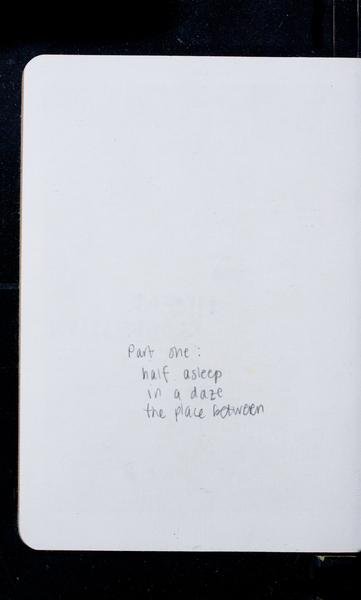 Part one:
half asleep
in a daze
the place between